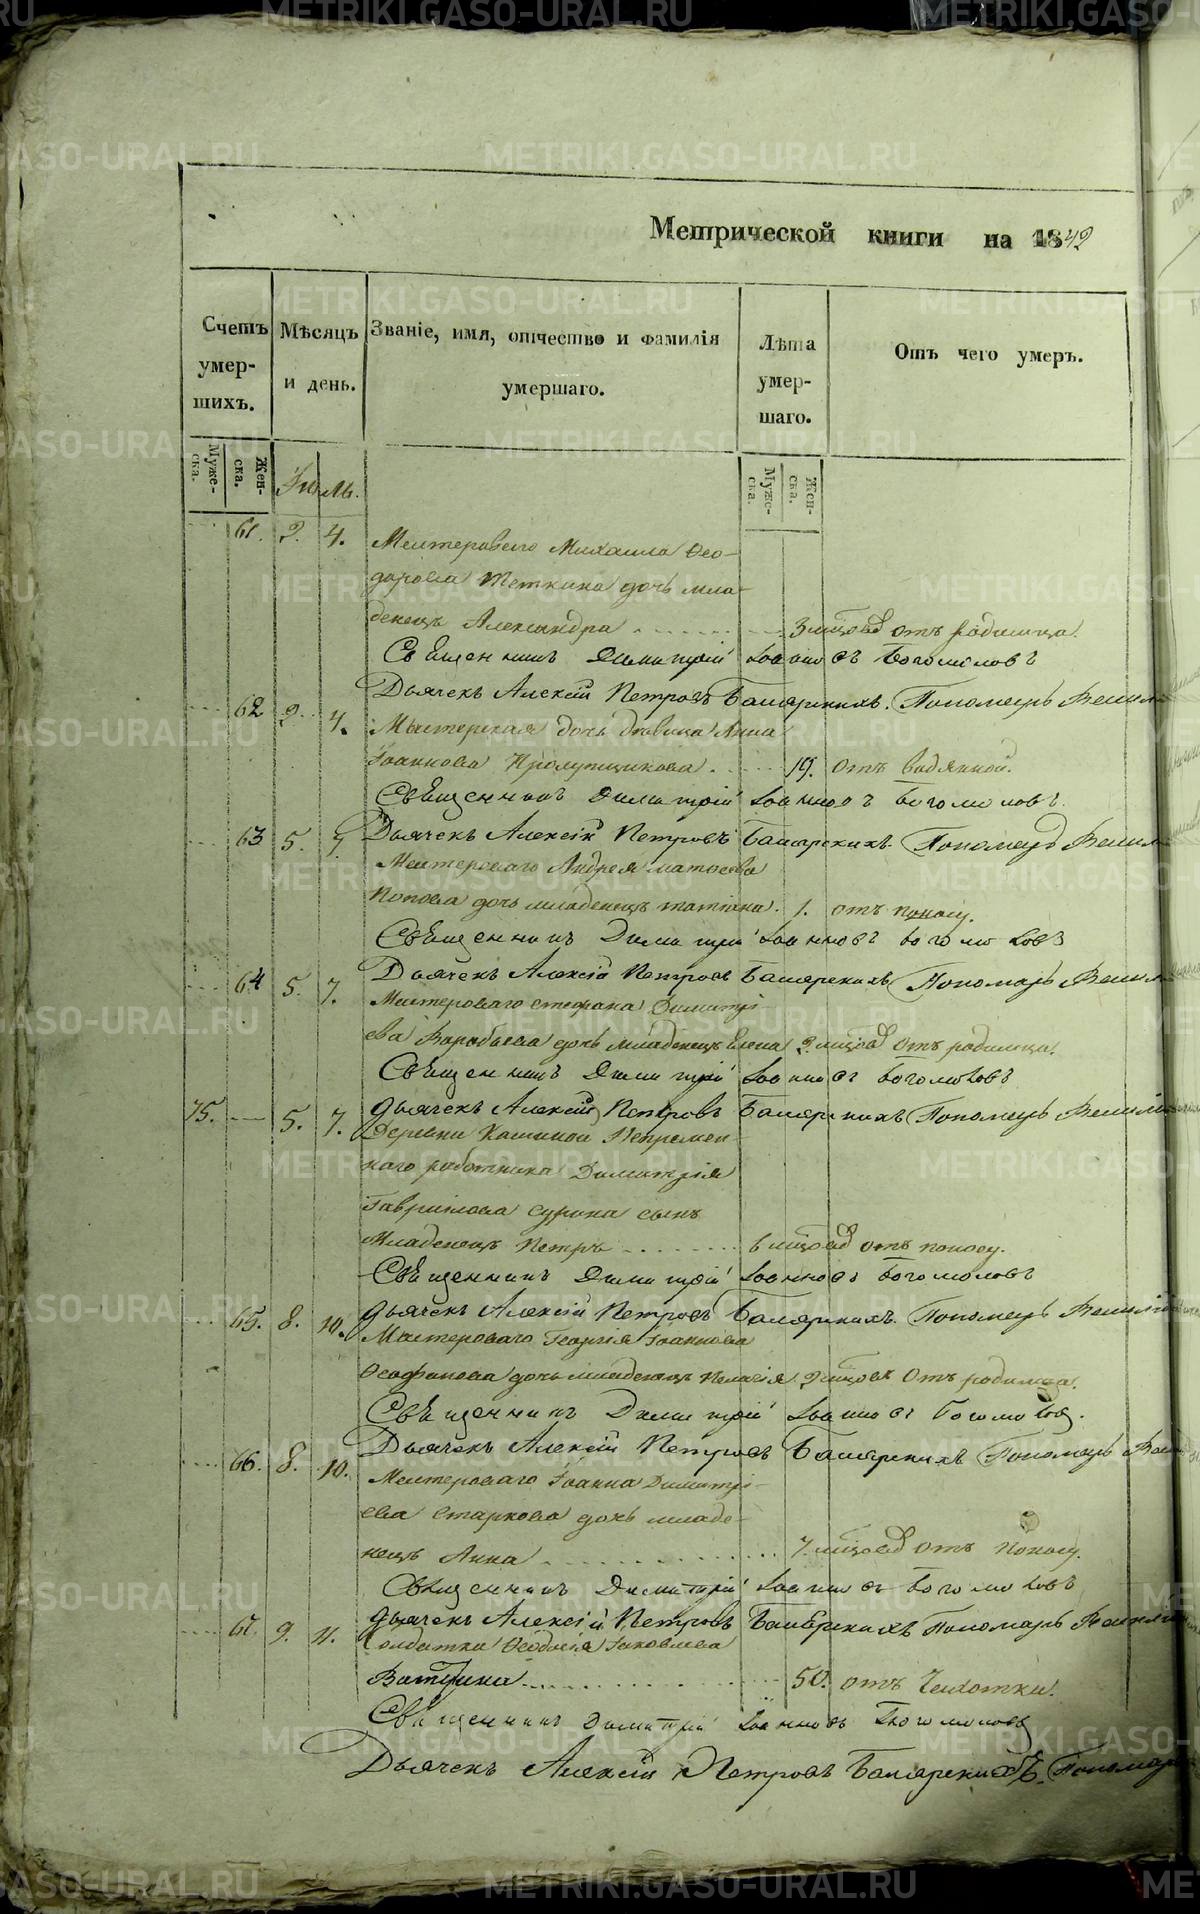 Метрической книги на 1842
Счетъ умер-шихъ.
Мѣсяцъ и день.
Званіе, имя, отчество и фамилія умершаго.
Лѣта умер-шаго.
Отъ чего умеръ.
Муже-ска.
Жен-ска.
Іюль.
Муже-ска.
Жен-ска.
61. 2. 4. Мастероваго Михаила Ѳео-
дорова Теткина дочь мла-
денецъ Александра 3 мцовъ отъ родимца.
Священникъ Димитрій Іоанновъ Богомоловъ
Дьячекъ Алексій Петровъ Пономарь
62 2. 4. Мастерская дочь дѣвица Анна
Іоаннова 19. отъ водяной.
Священникъ Димитрій Іоанновъ Богомоловъ
Дьячекъ Алексій Петровъ Пономарь
63 5. Мастероваго Андрея
Попова дочь младенецъ Татіана. 1. отъ поносу.
Священникъ Димитрій Іоанновъ Богомоловъ
Дьячекъ Алексій Петровъ Пономарь
64 5. 7. Мастероваго Стефана Димитрі-
ева дочь младенецъ Елена 2 мцовъ отъ родимца.
Священникъ Димитрій Іоанновъ Богомоловъ
75. 5. 7. Дьячекъ Алексій Петровъ Пономарь
Деревни Кашиной Непремен-
наго работника Димитрія
Гаврилова сынъ
Младенецъ Петръ 6 мцовъ отъ поносу.
Священникъ Димитрій Іоанновъ Богомоловъ
65. 8. 10. Дьячекъ Алексій Петровъ Пономарь
Мастероваго Георгія Іоаннова
Ѳеофанова дочь младенецъ Пелагія 2 мцовъ отъ родимца.
Священникъ Димитрій Іоанновъ Богомоловъ.
Дьячекъ Алексій Петровъ Пономарь
66. 8. 10. Мастероваго Іоанна Димитрі-
ева Старкова дочь младе-
нецъ Анна 7 мцовъ отъ поносу.
Священникъ Димитрій Іоанновъ Богомоловъ
Дьячекъ Алексій Петровъ Пономарь
67. 9. 11. Солдатка Ѳеодосія Іаковлева
50. отъ чахотки.
Священникъ Димитрій Іоанновъ Богомоловъ
Дьячекъ Алексій Петровъ Пономарь
METRIKI.GASO-URAL.RU